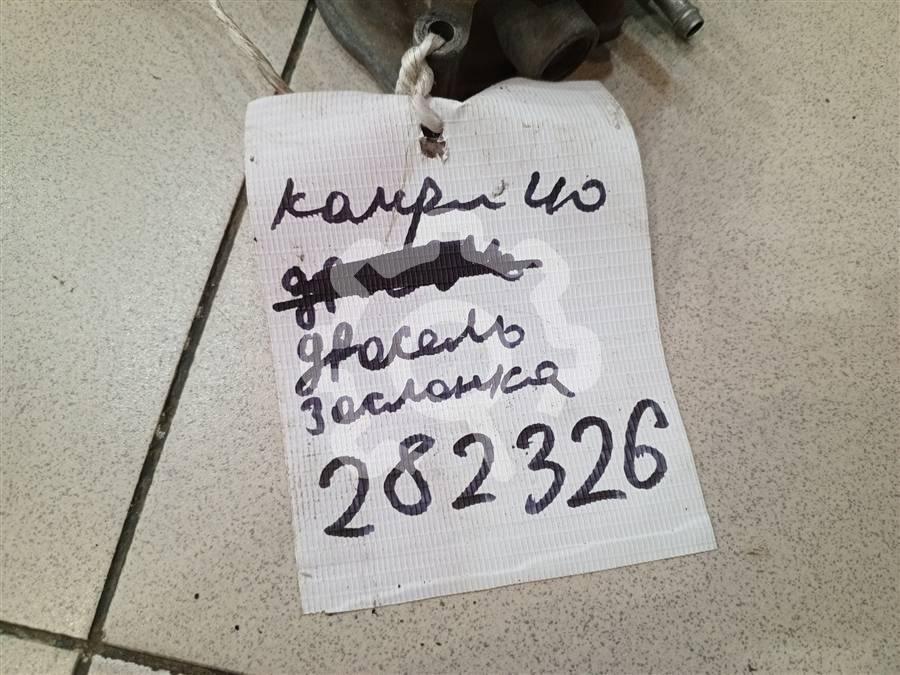 камри 40
дроссель
заслонка
282326